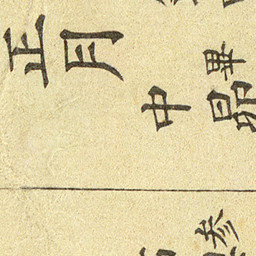 正月
畢
中昴
參